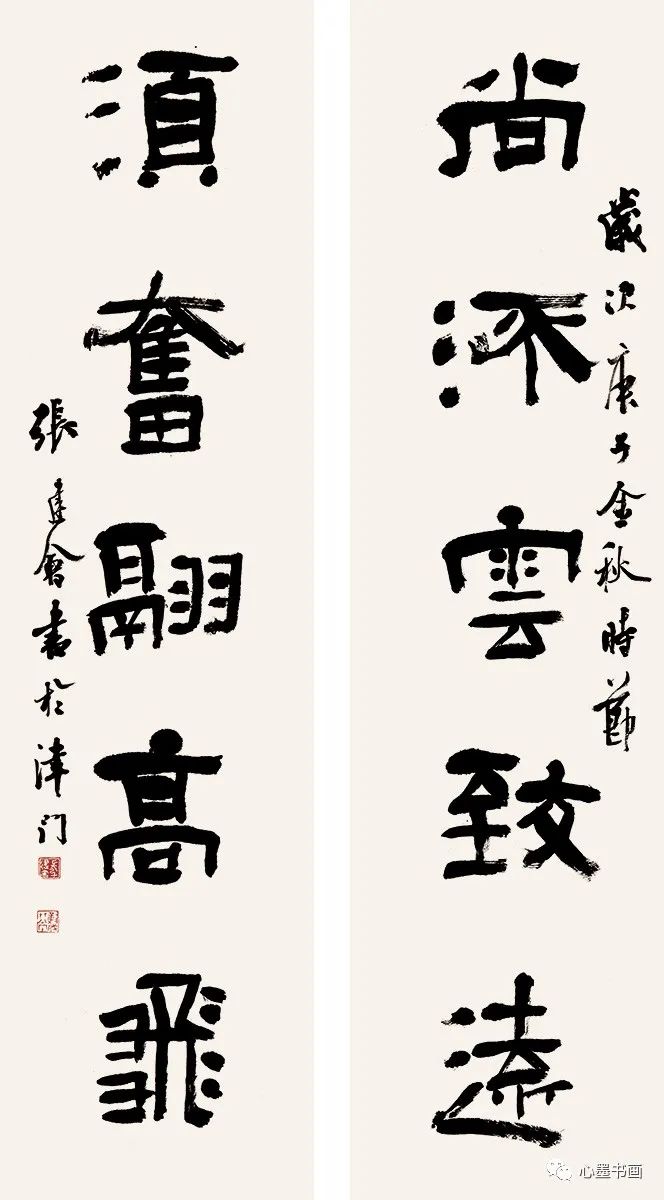 尚雲致遠
歲次庚子金秋時節
須奮翮高飛
張建會書於津门
心墨书画